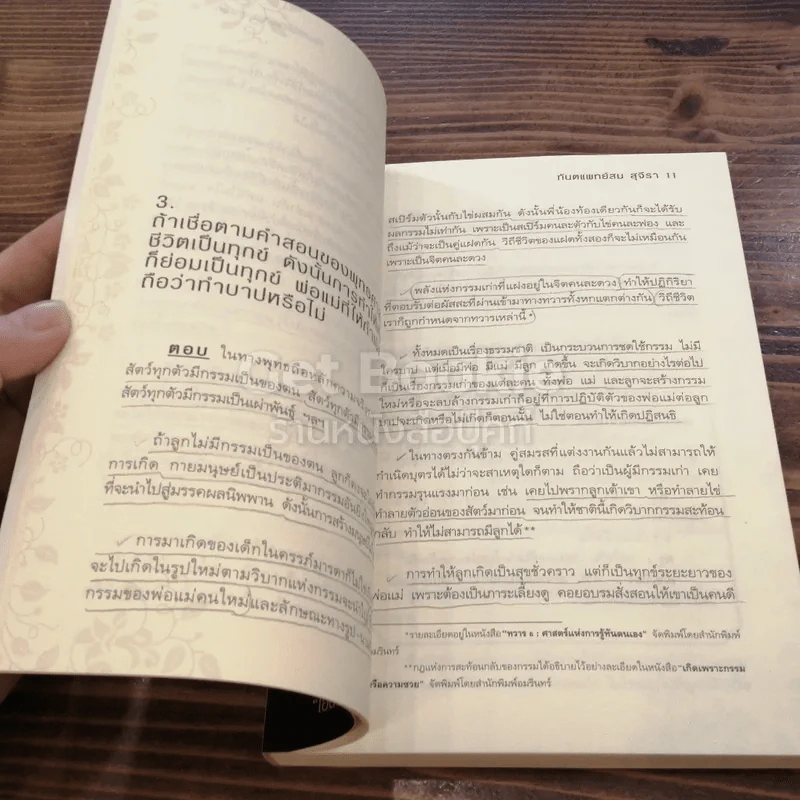 3.
ถ้าเชื่อตามคำสอนของพุทธ
ชีวิตเป็นทุกข์ ดังนั้นการทำให้
ก็ย่อมเป็นทุกข์ พ่อแม่ที่ให้กำ
ถือว่าทำบาปหรือไม่
ตอบ ในทางพุทธถือหลักความจริง
สัตว์ทุกตัวมีกรรมเป็นของตน สัตว์ทุกตัวมี
สัตว์ทุกตัวมีกรรมเป็นเผ่าพันธุ์ ฯลฯ
ถ้าลูกไม่มีกรรมเป็นของตน ลูกก็คง
การเกิด กายมนุษย์เป็นประติมากรรมอัน
ที่จะนำไปสู่มรรคผลนิพพาน ดังนั้นการสร้างมนุษย์
การมาเกิดของเด็กในครรภ์มารดาก็ไม่ใช่
จะไปเกิดในรูปใหม่ตามวิบากแห่งกรรมจะนำไป
กรรมของพ่อแม่คนใหม่และลักษณะทางรูป-นาม
ทันตแพทย์สม สุจีรา 11
สเปิร์มตัวนั้นกับไข่ผสมกัน ดังนั้นพี่น้องท้องเดียวกันก็จะได้รับ
ผลกรรมไม่เท่ากัน เพราะเป็นสเปิร์มคนละตัวกับไข่คนละฟอง และ
ถึงแม้ว่าจะเป็นคู่แฝดกัน วิถีชีวิตของแฝดทั้งสองก็จะไม่เหมือนกัน
เพราะเป็นจิตคนละดวง
พลังแห่งกรรมเก่าที่แฝงอยู่ในจิตคนละดวง ทำให้ปฏิกิริยา
ที่ตอบรับต่อผัสสะที่ผ่านเข้ามาทางทวารทั้งหกแตกต่างกัน วิถีชีวิต
เราก็ถูกกำหนดจากทวารเหล่านี้*
ทั้งหมดเป็นเรื่องธรรมชาติ เป็นกระบวนการชดใช้กรรม ไม่มี
ใครบาป แต่เมื่อมีพ่อ มีแม่ มีลูก เกิดขึ้น จะเกิดวิบากอย่างไรต่อไป
ก็เป็นเรื่องกรรมเก่าของแต่ละคน ทั้งพ่อ แม่ และลูกจะสร้างกรรม
ใหม่หรือจะลบล้างกรรมเก่าอยู่ที่การปฏิบัติตัวของพ่อแม่ต่อลูก
บาปจะเกิดหรือไม่เกิดก็ตอนนั้น ไม่ใช่ตอนทำให้เกิดปฏิสนธิ
ในทางตรงกันข้าม คู่สมรสที่แต่งงานกันแล้วไม่สามารถให้
กำเนิดบุตรได้ไม่ว่าจะสาเหตุใดก็ตาม ถือว่าเป็นผู้มีกรรมเก่า เคย
ทำกรรมรุนแรงมาก่อน เช่น เคยไปพรากลูกเต้าเขา หรือทำลายไข่
ทำลายตัวอ่อนของสัตว์มาก่อน จนทำให้ชาตินี้เกิดวิบากกรรมสะท้อน
กลับ ทำให้ไม่สามารถมีลูกได้**
การทำให้ลูกเกิดเป็นสุขชั่วคราว แต่ก็เป็นทุกข์ระยะยาวของ
พ่อแม่ เพราะต้องเป็นภาระเลี้ยงดู คอยอบรมสั่งสอนให้เขาเป็นคนดี
*รายละเอียดอยู่ในหนังสือ "ทวาร ๖ : ศาสตร์แห่งการรู้ทันตนเอง" จัดพิมพ์โดยสำนักพิมพ์
อมรินทร์
**กฎแห่งการสะท้อนกลับของกรรมได้อธิบายไว้อย่างละเอียดในหนังสือ "เกิดเพราะกรรม
หรือความซวย" จัดพิมพ์โดยสำนักพิมพ์อมรินทร์